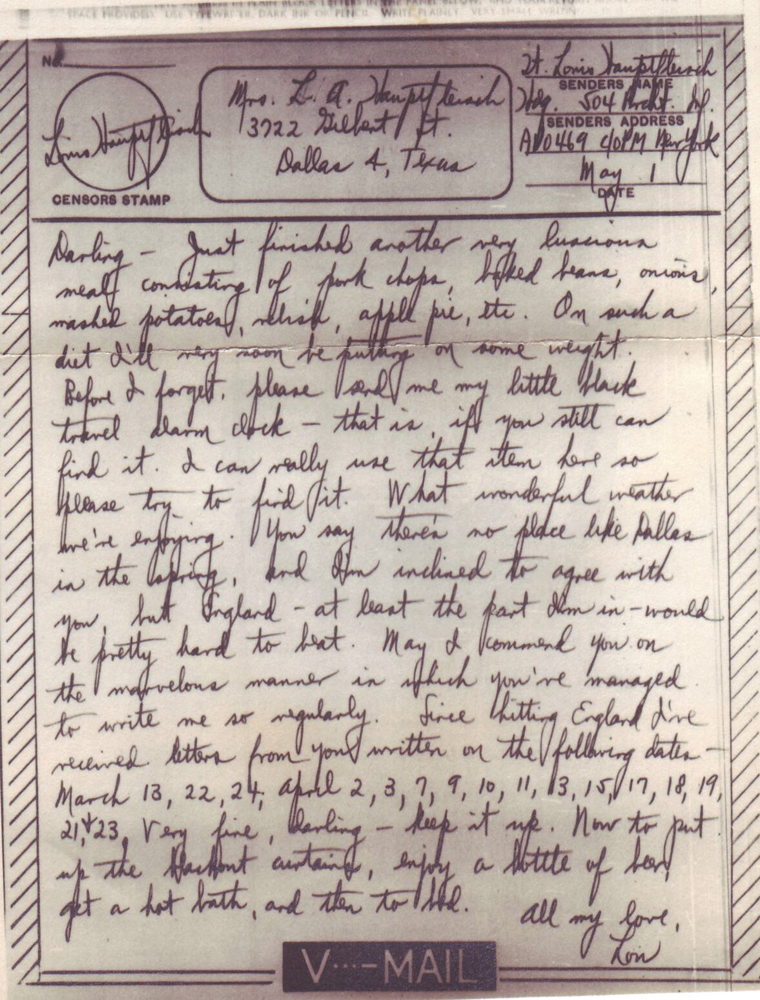 SPACE PROVIDED. USE TYPEWRITER, DARK INK OR PENCIL. WRITE PLAINLY. VERY SMALL WRITING
No.
Louis Hauptfleisch
CENSORS STAMP
Mrs. L. A. Hauptfleisch
3722 Gilbert St.
Dallas 4, Texas
Lt. Louis Hauptfleisch
SENDERS NAME
Hdq. 504 Prcht. Inf.
SENDERS ADDRESS
APO 469 c/o PM New York
May 1
DATE
Darling – Just finished another very luscious
meal consisting of pork chops, baked beans, onions,
mashed potatoes, relish, apple pie, etc. On such a
diet I'll very soon be putting on some weight.
Before I forget, please send me my little black
travel alarm clock – that is, if you still can
find it. I can really use that item here so
please try to find it. What wonderful weather
we're enjoying. You say there's no place like Dallas
in the spring, and I'm inclined to agree with
you, but England – at least the part I'm in – would
be pretty hard to beat. May I commend you on
the marvelous manner in which you've managed
to write me so regularly. Since hitting England I've
received letters from you written on the following dates –
March 13, 22, 24, April 2, 3, 7, 9, 10, 11, 13, 15, 17, 18, 19,
21, + 23. Very fine, darling – keep it up. Now to put
up the blackout curtains, enjoy a bottle of beer,
get a hot bath, and then to bed.
All my love,
Lou
V···–MAIL